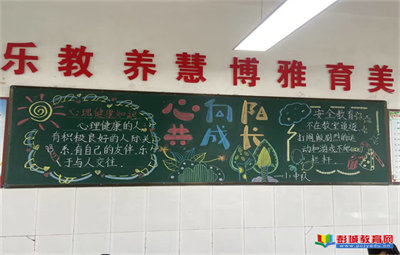 乐教 养慧 博雅 育美
心理健康知识
心理健康的人
有积极良好的人际关
系,有自己的友伴,乐
于与人交往.
心向阳
共成长
安全教育
不在教室追逐
打闹
动和游戏不爬
栏杆.
彭城教育网